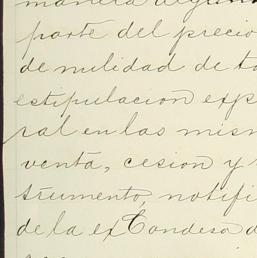 manera alguna
parte del precio
de nulidad de to
estipulacion exp
ral en las mism
venta, cesion y
trumento, notifi
de la ex Condesa d